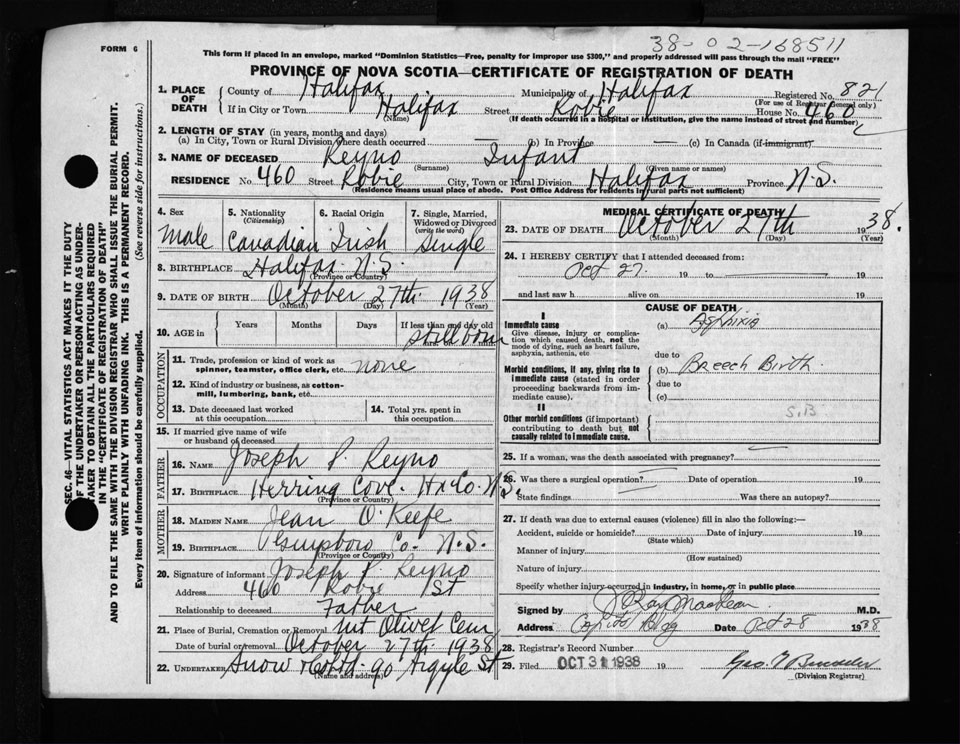 38-02-168511
FORM 6
This form if placed in an envelope, marked "Dominion Statistics—Free, penalty for improper use $300," and properly addressed will pass through the mail "FREE"
PROVINCE OF NOVA SCOTIA—CERTIFICATE OF REGISTRATION OF DEATH
1. PLACE OF DEATH County of Halifax Municipality of Halifax Registered No. 821
(For use of Registrar General only)
If in City or Town Halifax Street Robie House No. 460
(Name) (If death occurred in a hospital or institution, give the name instead of street and number)
2. LENGTH OF STAY (in years, months and days)
(a) In City, Town or Rural Division where death occurred (b) In Province — (c) In Canada (if immigrant)
3. NAME OF DECEASED Reyno Infant
(Surname) (Given name or names)
RESIDENCE No. 460 Street Robie City, Town or Rural Division Halifax Province N.S.
(Residence means usual place of abode. Post Office Address for residents in rural parts not sufficient)
SEC. 46—VITAL STATISTICS ACT MAKES IT THE DUTY
OF THE UNDERTAKER OR PERSON ACTING AS UNDER-
TAKER TO OBTAIN ALL THE PARTICULARS REQUIRED
IN THE "CERTIFICATE OF REGISTRATION OF DEATH"
AND TO FILE THE SAME WITH THE DIVISION REGISTRAR WHO SHALL ISSUE THE BURIAL PERMIT.
WRITE PLAINLY WITH UNFADING INK. THIS IS A PERMANENT RECORD.
Every item of information should be carefully supplied. (See reverse side for instructions.)
4. Sex 5. Nationality (Citizenship) 6. Racial Origin 7. Single, Married, Widowed or Divorced (write the word)
Male Canadian Irish Single
8. BIRTHPLACE Halifax N.S.
(Province or Country)
9. DATE OF BIRTH October 27th 1938
(Month) (Day) (Year)
10. AGE in Years Months Days If less than one day old
Stillborn
OCCUPATION
11. Trade, profession or kind of work as
spinner, teamster, office clerk, etc. none
12. Kind of industry or business, as cotton-
mill, lumbering, bank, etc.
13. Date deceased last worked at this occupation 14. Total yrs. spent in this occupation
15. If married give name of wife
or husband of deceased
FATHER
16. NAME Joseph P. Reyno
17. BIRTHPLACE Herring Cove. Hx Co. N.S.
(Province or Country)
MOTHER
18. MAIDEN NAME Jean O'Keefe
19. BIRTHPLACE Guysboro Co. N.S.
(Province or Country)
20. Signature of informant Joseph P. Reyno
Address 460 Robie St
Relationship to deceased Father
21. Place of Burial, Cremation or Removal Mt Olivet Cem
Date of burial or removal October 27th 1938
22. UNDERTAKER Snow & Co Ltd 90 Argyle St
(Name and address)
MEDICAL CERTIFICATE OF DEATH
23. DATE OF DEATH October 27th 1938.
(Month) (Day) (Year)
24. I HEREBY CERTIFY that I attended deceased from:
Oct 27 19 to 19
and last saw h alive on 19
CAUSE OF DEATH
I
Immediate cause (a) Asphixia
Give disease, injury or complica-
tion which caused death, not the
mode of dying, such as heart failure,
asphyxia, asthenia, etc due to
Morbid conditions, if any, giving rise to (b) Breech Birth.
immediate cause (stated in order due to
proceeding backwards from im-
mediate cause). (c)
II S.B
Other morbid conditions (if important)
contributing to death but not
causally related to immediate cause.
25. If a woman, was the death associated with pregnancy?
26. Was there a surgical operation? Date of operation 19
State findings Was there an autopsy?
27. If death was due to external causes (violence) fill in also the following:—
Accident, suicide or homicide? Date of injury 19
(State which)
Manner of injury
(How sustained)
Nature of injury
Specify whether injury occurred in industry, in home, or in public place
Signed by J Ray MacLean M.D.
Address Capitol Bldg Date Oct 28 1938
28. Registrar's Record Number
29. Filed OCT 31 1938
(Division Registrar)